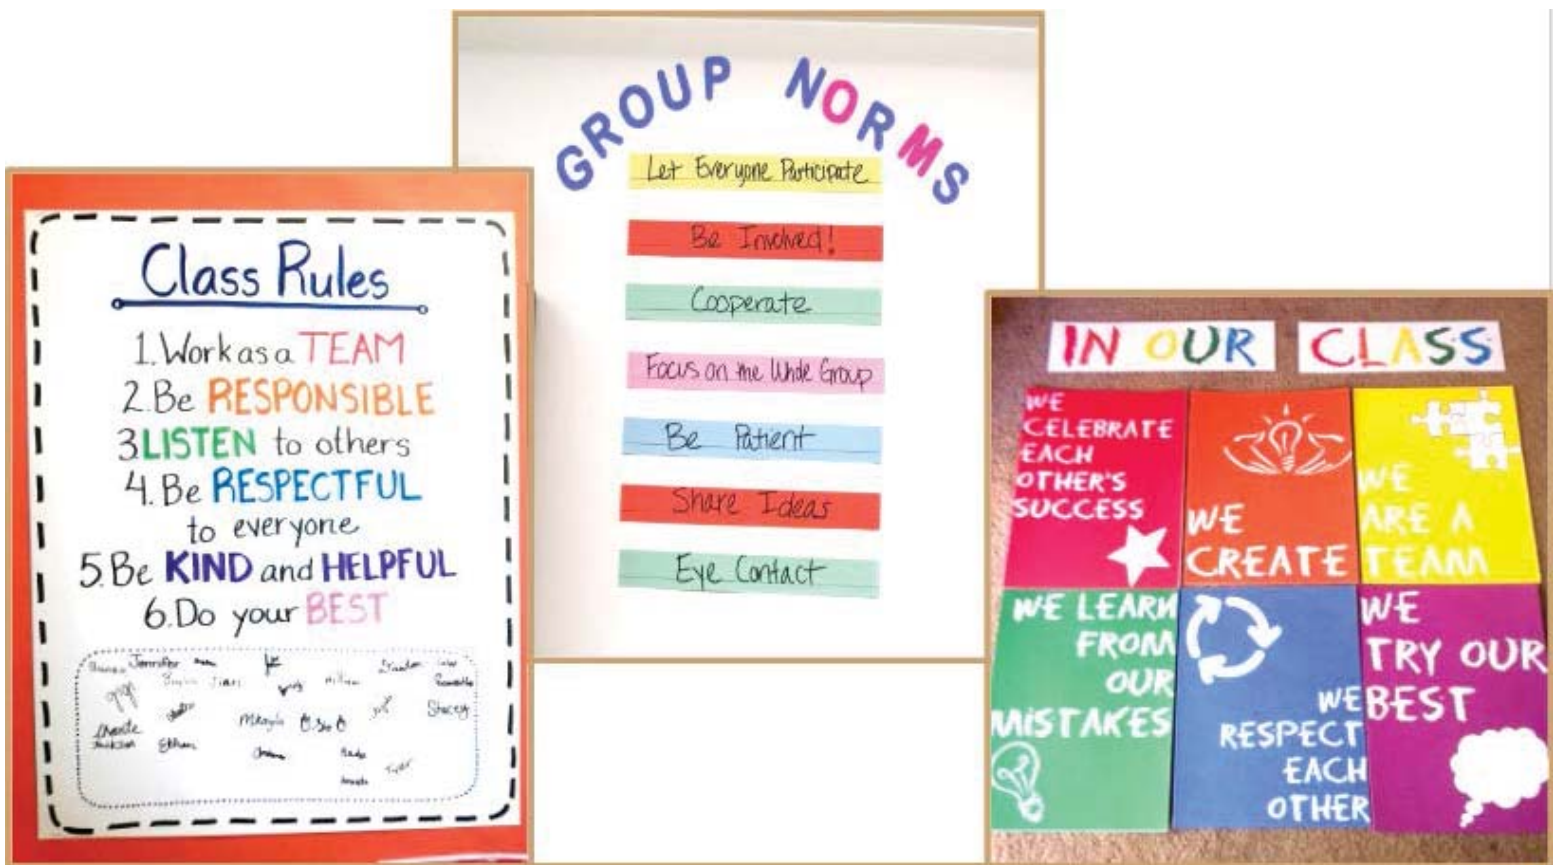 Class Rules
1. Work as a TEAM
2. Be RESPONSIBLE
3. LISTEN to others
4. Be RESPECTFUL
to everyone
5. Be KIND and HELPFUL
6. Do your BEST
Jennifer
Jiari
Mikayla
Stacey
Ethan
Tyler
GROUP NORMS
Let Everyone Participate
Be Involved!
Cooperate
Focus on the Whole Group
Be Patient
Share Ideas
Eye Contact
IN OUR CLASS
WE
CELEBRATE
EACH
OTHER'S
SUCCESS
WE
CREATE
WE
ARE A
TEAM
WE LEARN
FROM
OUR
MISTAKES
WE
RESPECT
EACH
OTHER
WE
TRY OUR
BEST